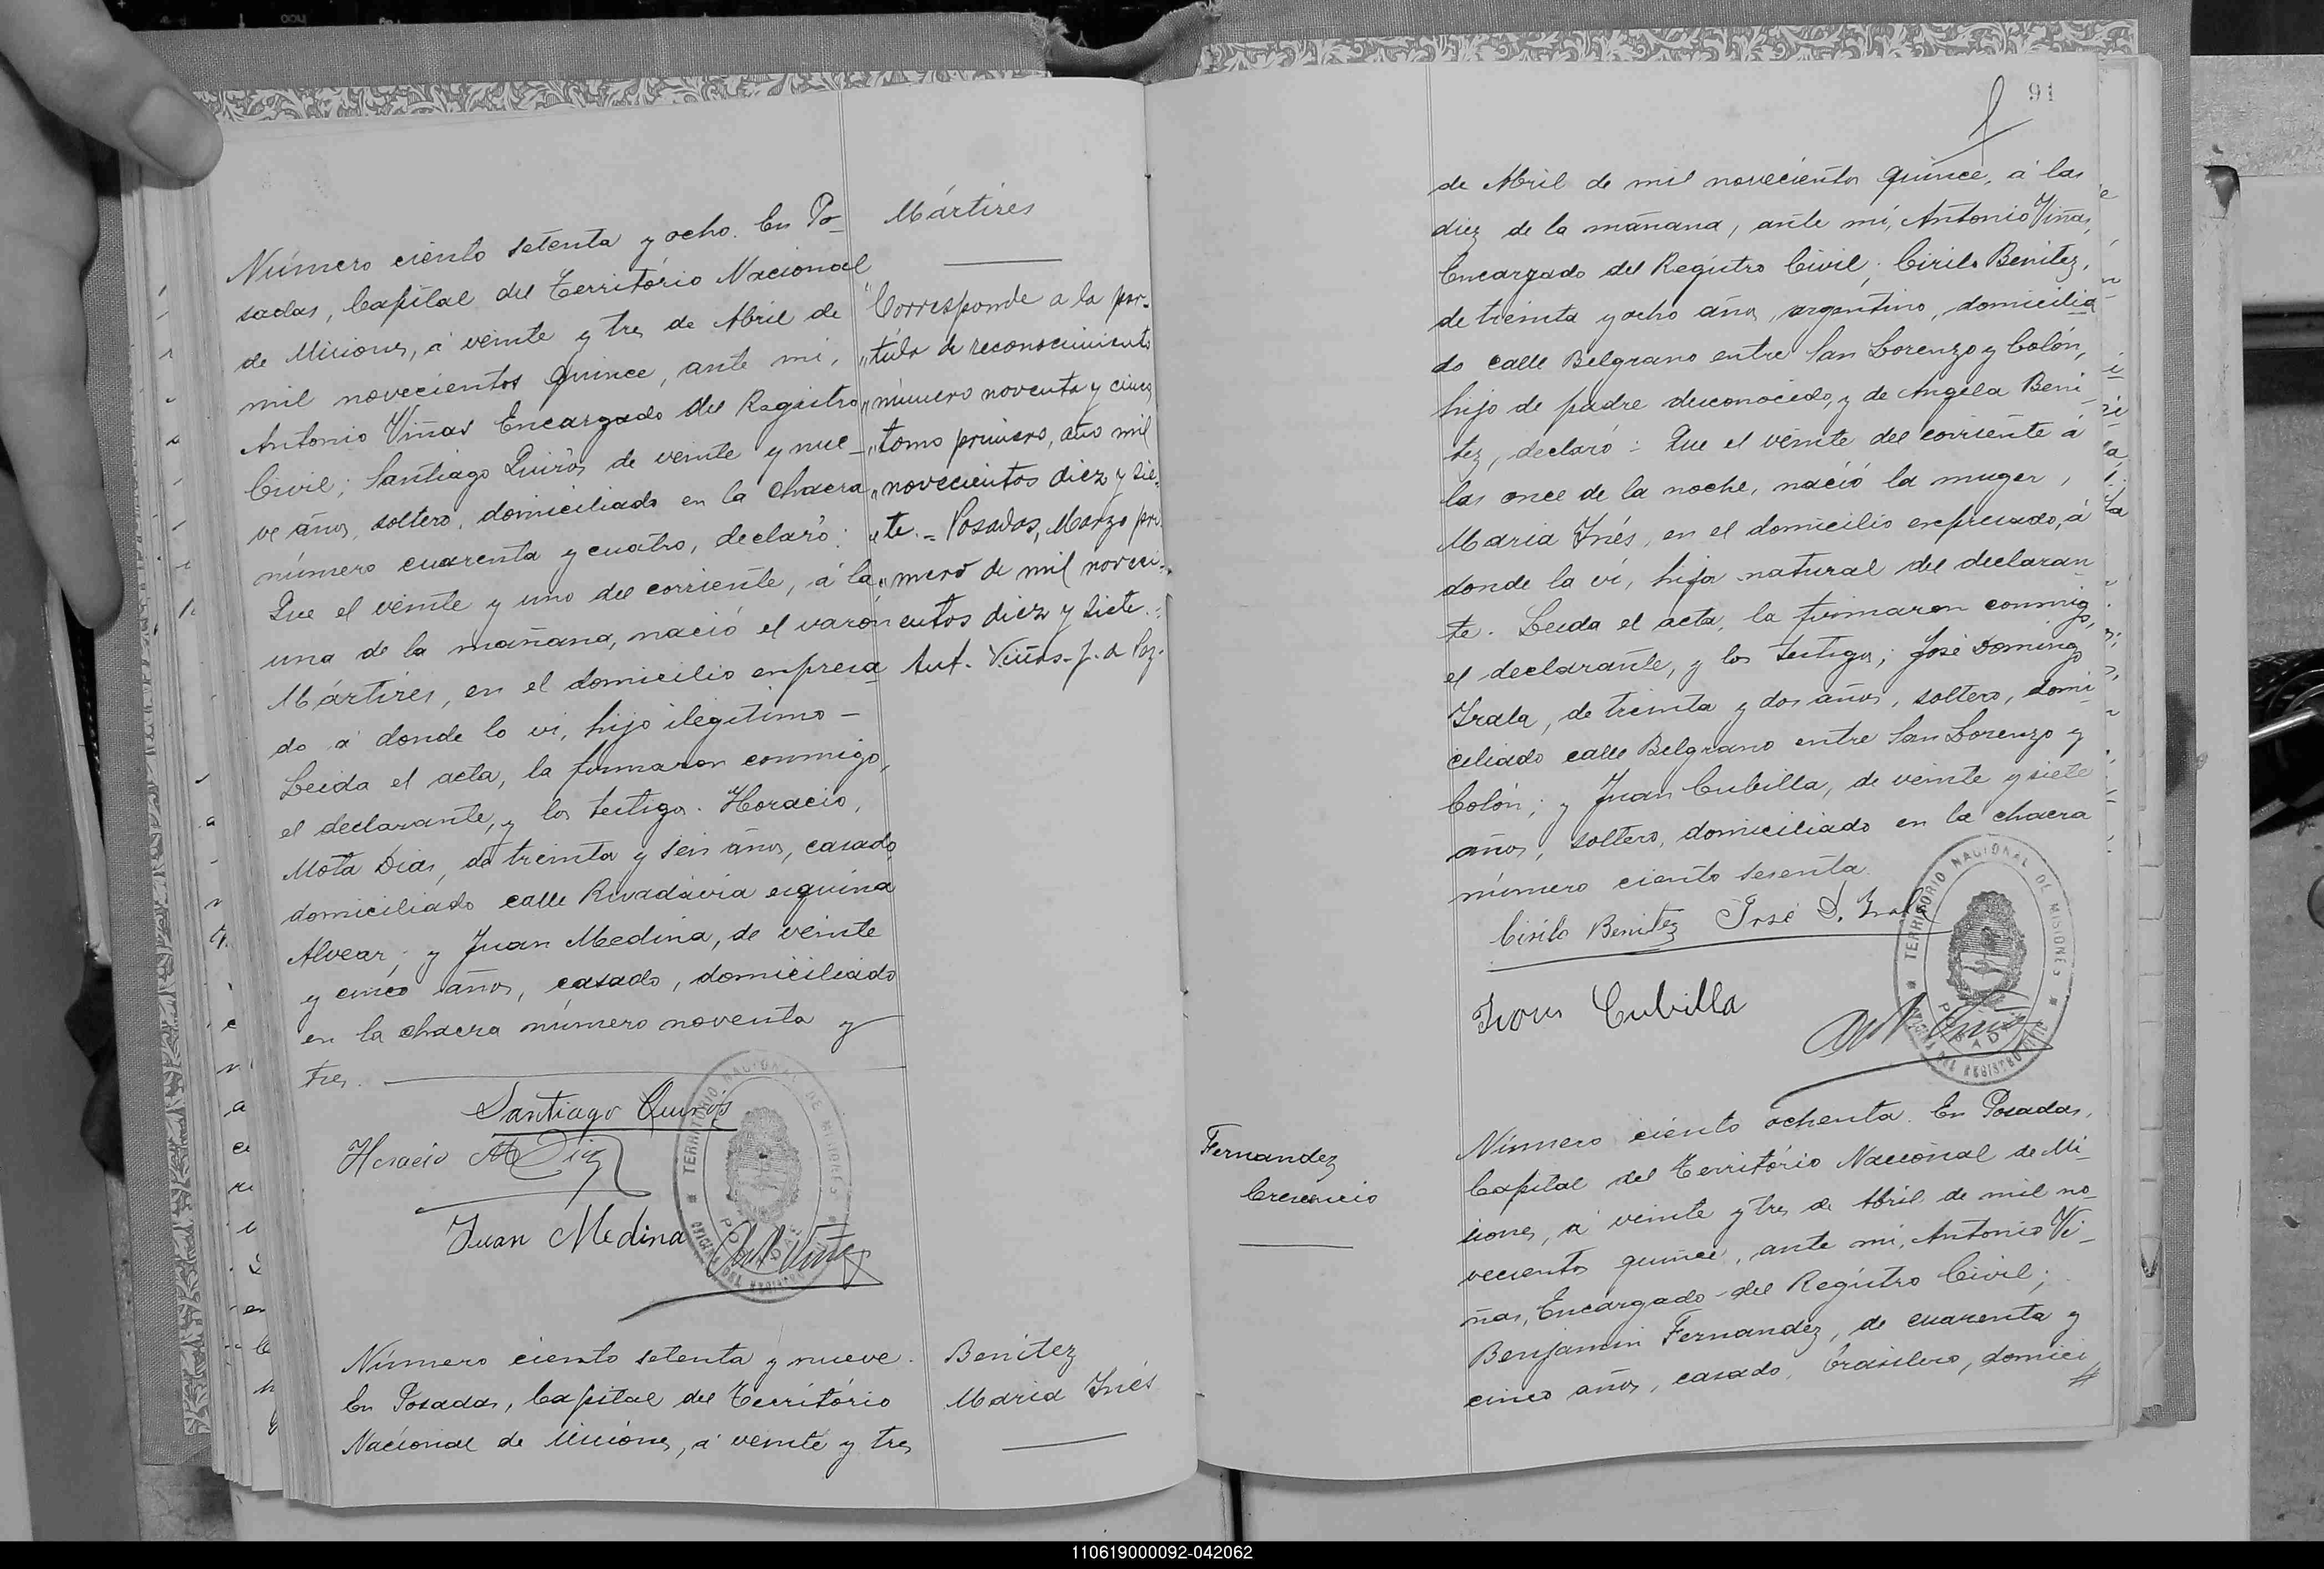 Número ciento setenta y ocho. En Po-
sadas, Capital del Território Nacional
de Misiones, á veinte y tres de Abril de
mil novecientos quince, ante mi,
Antonio Viñas Encargado del Registro
Civil; Santiago Quirós de veinte y nue-
ve años, soltero, domiciliado en la chacra
número cuarenta y cuatro, declaró:
Que el veinte y uno del corriente, á la
una de la mañana, nació el varón
Mártires, en el domicilio expresa
do á donde lo ví, hijo ilegitimo -
Leida el acta, la firmaron conmigo,
el declarante, y los testigos. Horacio,
Mota Dias, de treinta y seis años, casado,
domiciliado calle Rivadávia esquina
Alvear; y Juan Medina, de veinte
y cinco años, casado, domiciliado
en la chacra número noventa y
tres.
Santiago Quirós
Horacio M Diaz
Juan Medina
Ant Viñas
TERRITORIO NACIONAL DE MISIONES
OFICINA DEL REGISTRO CIVIL
POSADAS
Número ciento setenta y nueve.
En Posadas, Capital del Território
Nacional de Misiones, á veinte y tres
Mártires
"Corresponde a la par-
"tida de reconocimiento
"número noventa y cinco
"tomo primero, año mil
"novecientos diez y sie-
"te. = Posadas, Marzo pri
"mero de mil noveci-
entos diez y siete.
Ant. Viñas - J. de Paz.
Benitez
Maria Inés
91
de Abril de mil novecientos quince, á las
diez de la mañana, ante mí, Antonio Viñas,
Encargado del Registro Civil; Cirilo Benitez,
de treinta y ocho años, argentino, domicilia
do calle Belgrano entre San Lorenzo y Colón,
hijo de padre desconocido, y de Angela Beni
tez, declaró: Que el veinte del corriente á
las once de la noche, nació la muger,
Maria Inés, en el domicilio expresado, á
donde la ví, hija natural del declaran
te. Leida el acta, la firmaron conmigo,
el declarante, y los testigos; José Domingo
Irala, de treinta y dos años, soltero, domi
ciliado calle Belgrano entre San Lorenzo y
Colón; y Juan Cubilla, de veinte y siete
años, soltero, domiciliado en la chacra
número ciento sesenta.
Cirilo Benitez José D. Irala
Juan Cubilla
Ant Viñas
TERRITORIO NACIONAL DE MISIONES
OFICINA DEL REGISTRO CIVIL
POSADAS
Fernandez
Crescencio
Número ciento ochenta. En Posadas,
Capital del Território Nacional de Mi-
siones, á veinte y tres de Abril de mil no-
vecientos quince, ante mi, Antonio Vi-
ñas, Encargado del Registro Civil;
Benjamin Fernandez, de cuarenta y
cinco años, casado, brasilero, domici
#
110619000092-042062